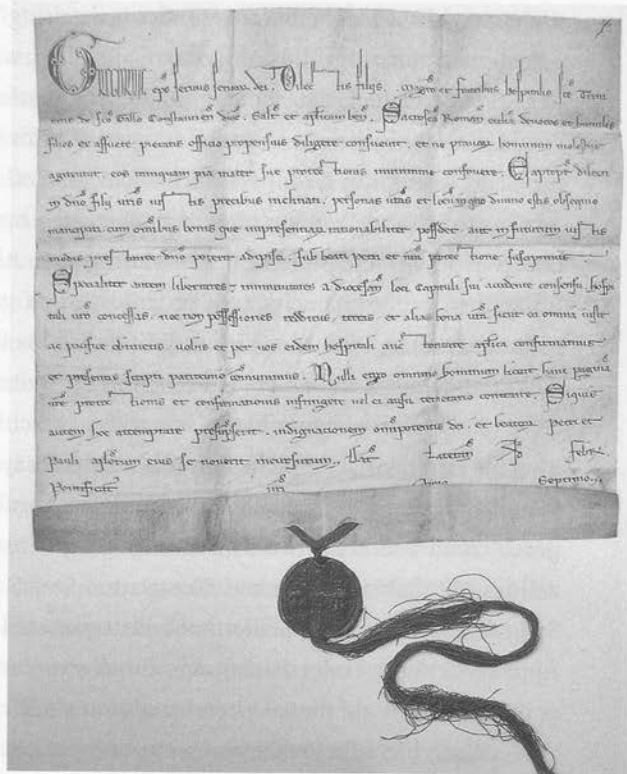 eps servus servorum dei. Dilectis filiis. Magro et fratribus hospitalis sce
de sco Gallo Constantien dioc. Salt et aplicam ben. Sacrosca Roman ecclia devotos et humiles
filios ex assuete pietatis officio propensius diligere consuevit, et ne pravorum hominum molestiis
agitentur, eos tanquam pia mater sue protectionis munimine confovere. Eapropt dilecti
in dno filii vris iustis precibus inclinati, personas vras et locum in quo divino estis obsequio
mancipati, cum omnibus bonis que impresentiarum rationabiliter possidet aut in futurum iustis
modis prestante dno poterit adipisci, sub beati Petri et nra protectione suscipimus.
Specialiter autem libertates et immunitates a diocesano loci Capituli sui accedente consensu, hospi
tali vro concessas, nec non possessiones redditus, terras et alia bona vra sicut ea omnia iuste
ac pacifice obtinetis, vobis et per vos eidem hospitali auctoritate aplica confirmamus
et presentis scripti patrocinio communimus. Nulli ergo omnino hominum liceat hanc paginam
nre protectionis et confirmationis infringere vel ei ausu temerario contraire. Siquis
autem hoc attemptare presumpserit, indignationem omnipotentis dei, et beatorum Petri et
Pauli aplorum eius se noverit incursurum. Dat Lateran
Pontificat nri Anno Septimo